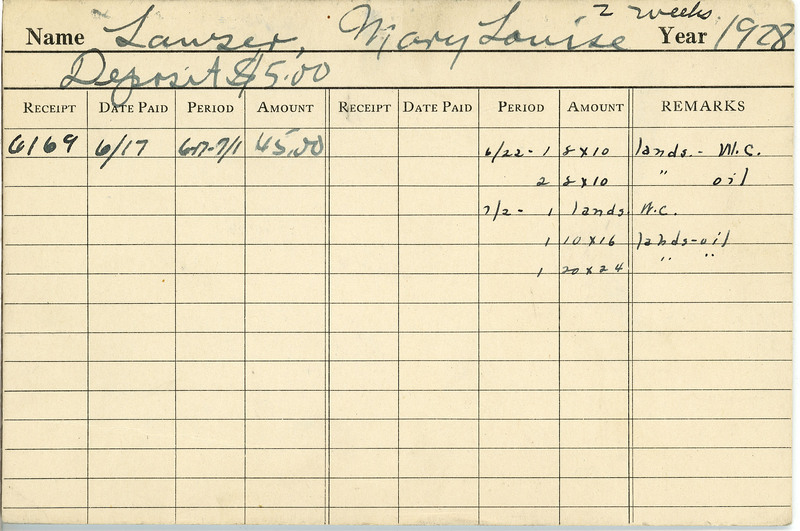 2 weeks
Name Lawser, Mary Louise Year 1928
Deposit $5.00
RECEIPT DATE PAID PERIOD AMOUNT RECEIPT DATE PAID PERIOD AMOUNT REMARKS
6169 6/17 6-17-7/1 45.00 6/22 - 1 8x10 lands. - W.C.
2 8x10 " oil
7/2 - 1 lands. W.C.
1 10x16 lands-oil
1 20x24 " "